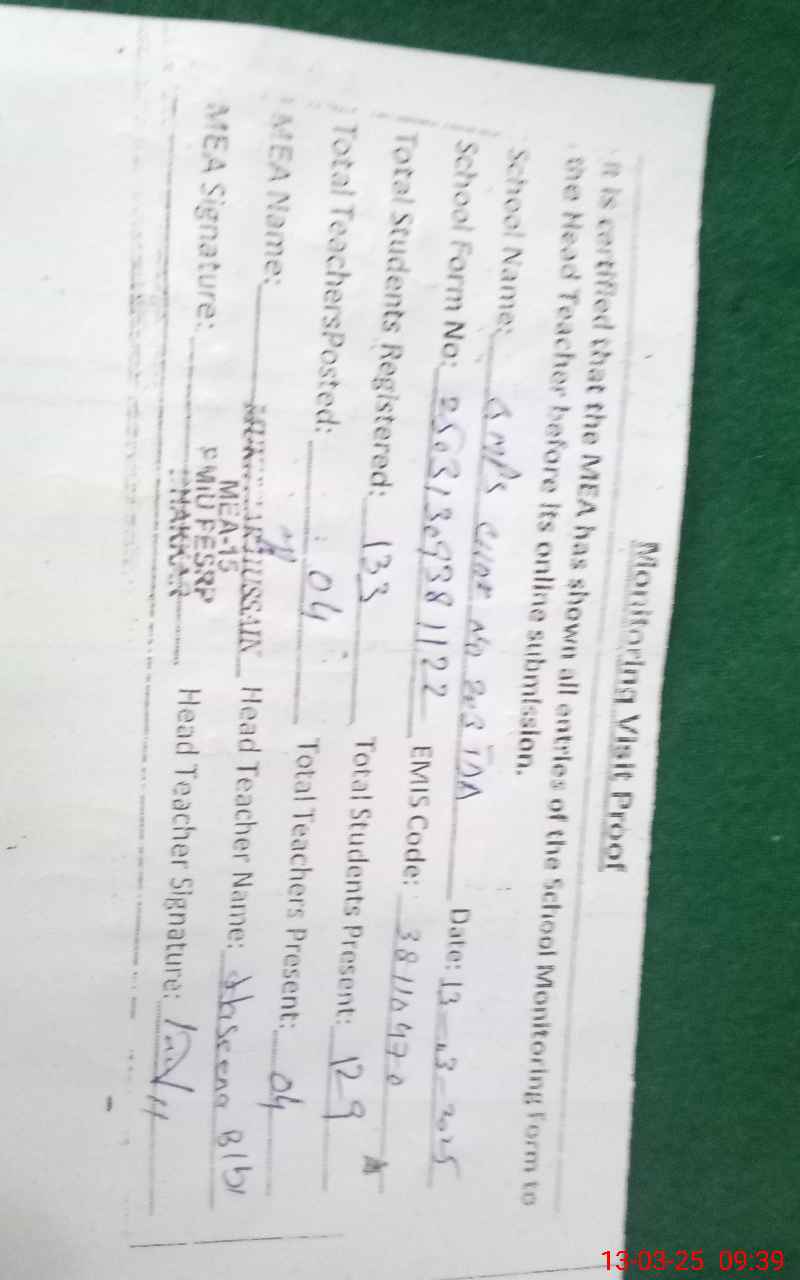 Monitoring Visit Proof
It is certified that the MEA has shown all entries of the School Monitoring Form to
the Head Teacher before its online submission.
School Name: GMPS Chak No 203 TDA Date: 13-03-2025
School Form No: 25031309381122 EMIS Code: 38110470
Total Students Registered: 133 Total Students Present: 129
Total TeachersPosted: 04 Total Teachers Present: 04
MEA Name: HUSSAIN Head Teacher Name: Haseena Bibi
MEA-15
PMIU PESRP
BHAKKAR
MEA Signature: Head Teacher Signature:
13-03-25 09:39